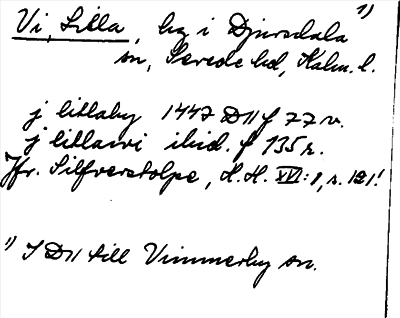 Vi, Lilla, hg i Djursdala 1)
sn, Sevede hd, Kalm. l.
j litlaby 1447 D11 f 77 v.
j litlawi ibid. f 135 r.
Jfr. Silfverstolpe, H.H. XVI:1, s. 121!
1) I D11 till Vimmerby sn.